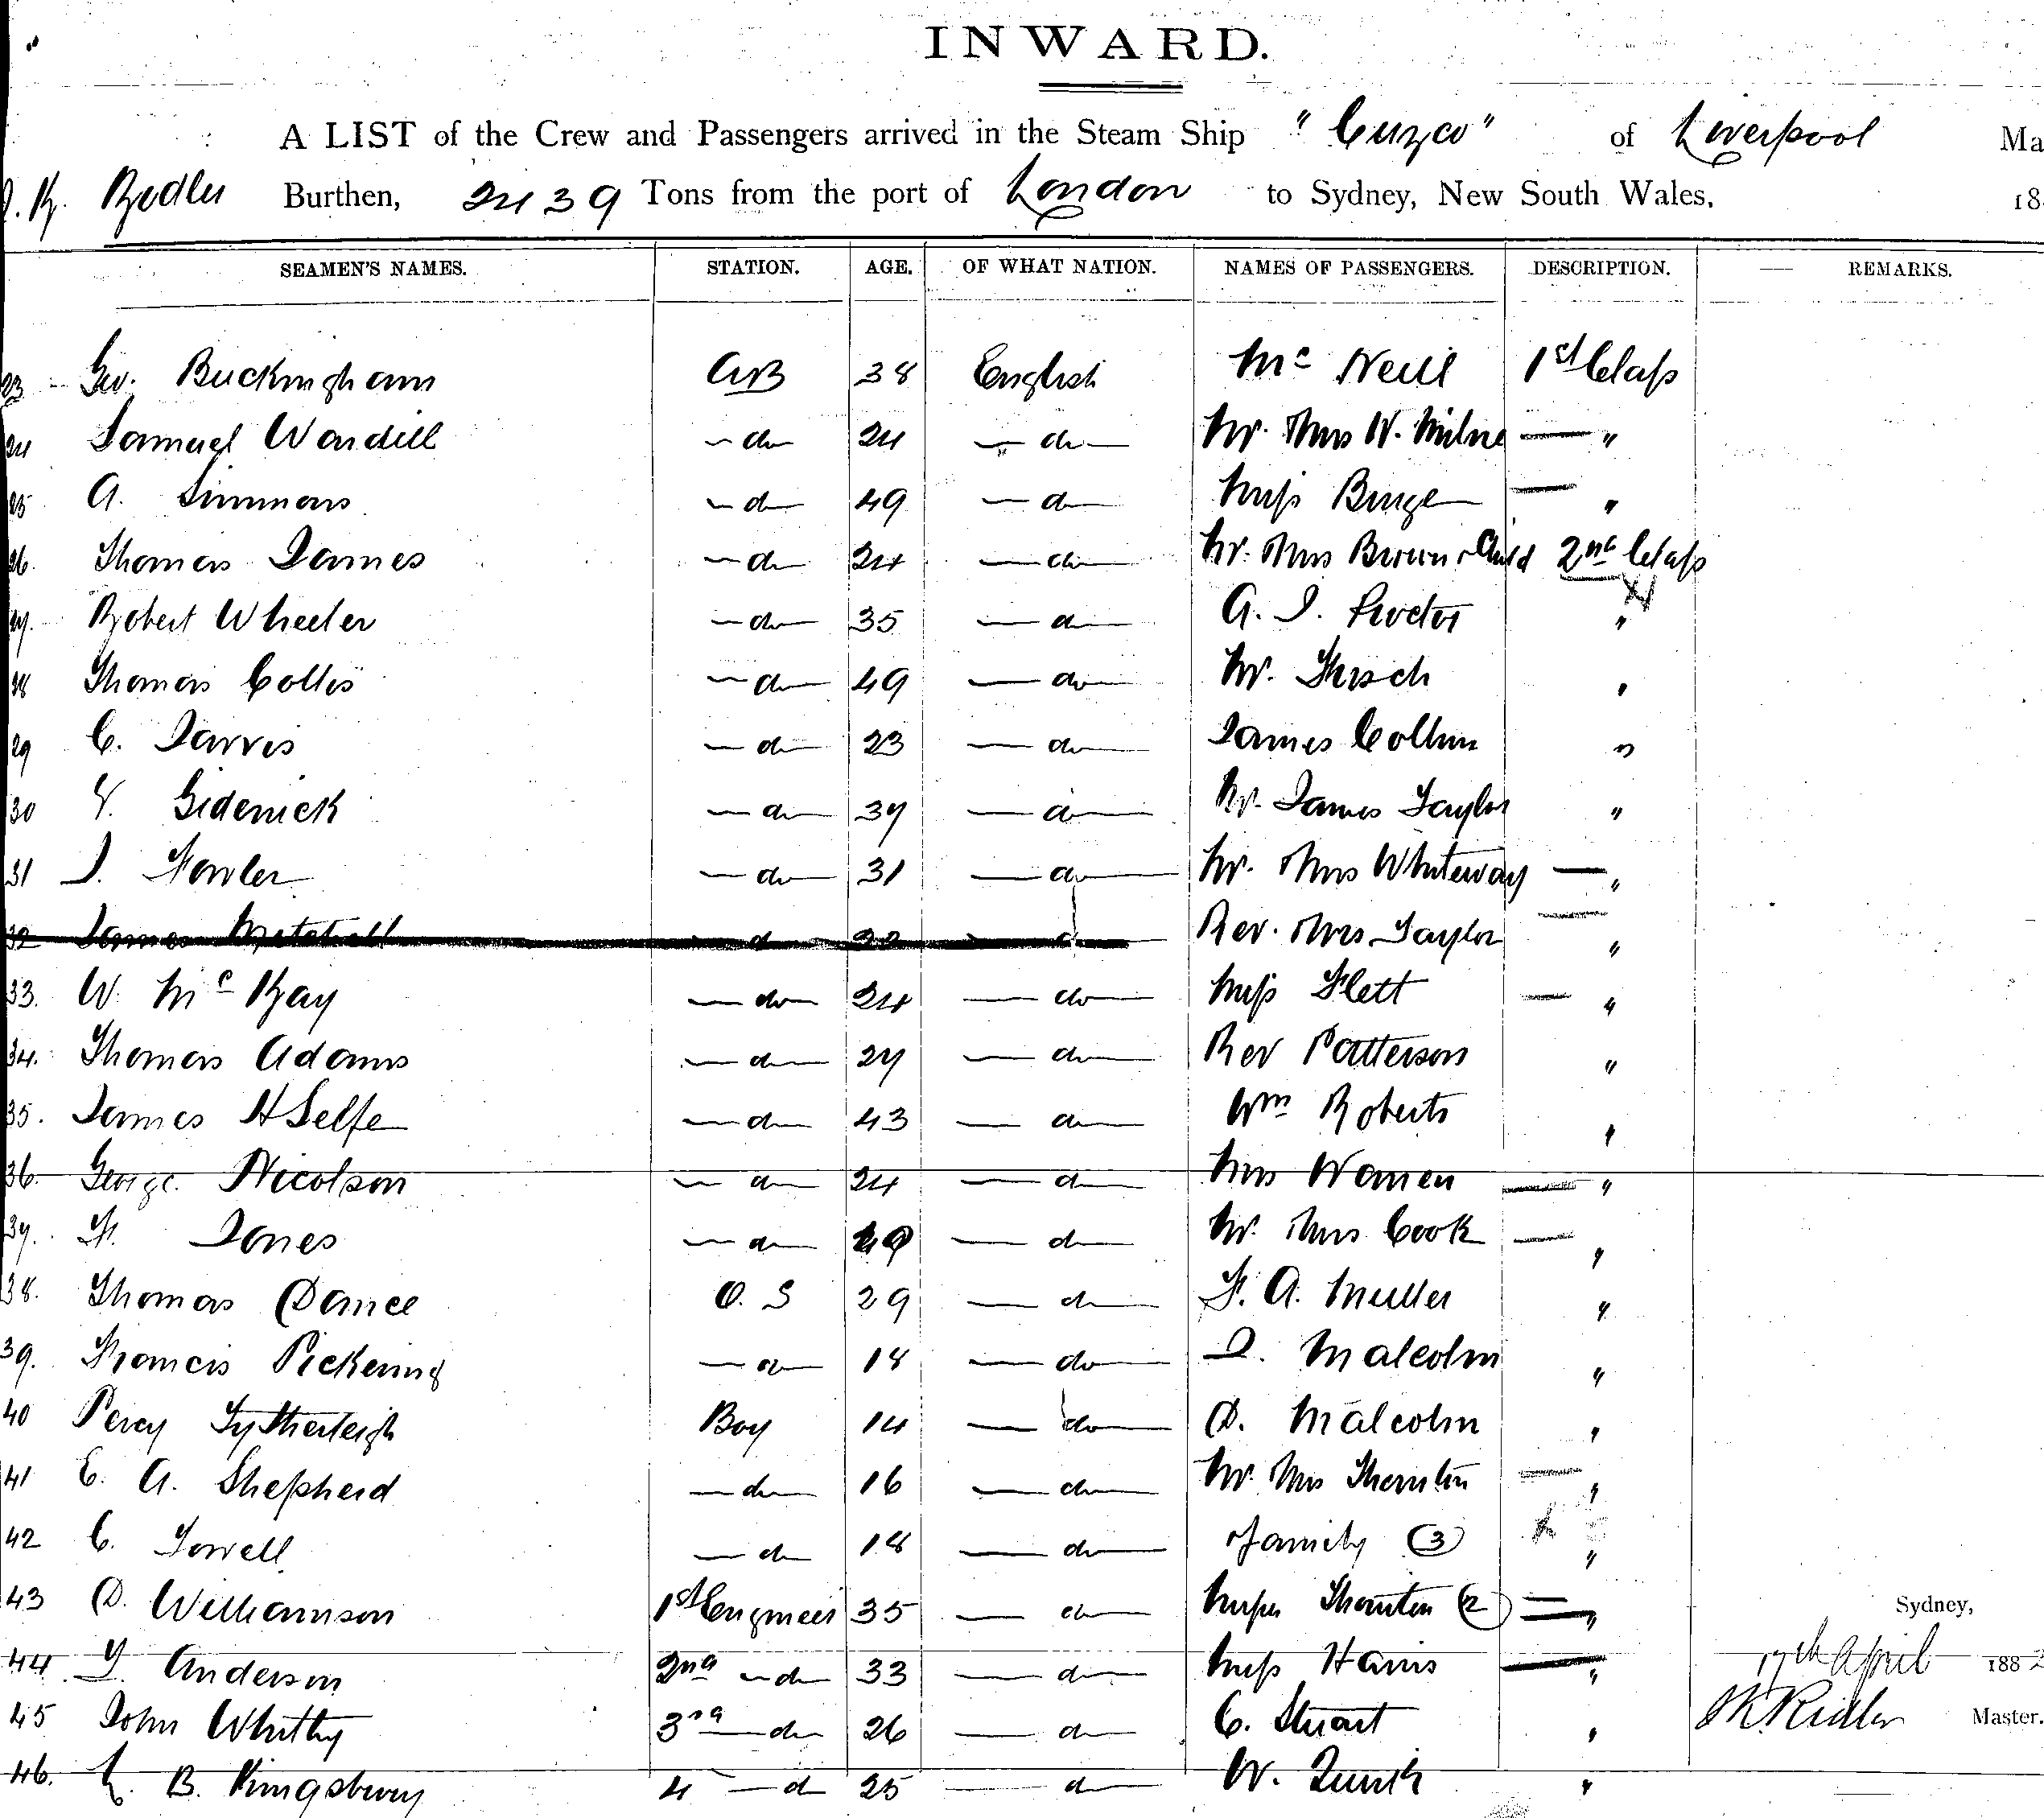 INWARD.
A LIST of the Crew and Passengers arrived in the Steam Ship "Cuzco" of Liverpool Ma
Burthen, 2439 Tons from the port of London to Sydney, New South Wales, 18
SEAMEN'S NAMES. STATION. AGE. OF WHAT NATION. NAMES OF PASSENGERS. DESCRIPTION. — REMARKS.
23 Geo. Buckingham AB 38 English Mc Neill 1st Class
24 Samuel Wardill — do 24 — do — Mr. Mrs W. Milne — "
25 A. Simmons — do 49 — do — Miss Binge — "
26. Thomas James — do 24 — do — Mr. Mrs Brown + Child 2nd Class
27. Robert Wheeler — do 35 — do — A. J. Proctor "
28 Thomas Collis — do 49 — do — Mr. "
29 C. Jarvis — do 23 — do — James Collum "
30 Giderick — do 37 — do — Mr. James Taylor "
31 J. Fowler — do 31 — do — Mr. Mrs Whiteway — "
32 James Mitchell — do 22 — do — Rev. Mrs Taylor — "
33. W. McKay — do 24 — do — Miss Flett — "
34. Thomas Adams — do 27 — do — Rev Patterson "
35. James H Selfe — do 43 — do — Wm Roberts "
36. George Nicolson — do 24 — do — Mrs Women — "
37. F. Jones — do 29 — do — Mr. Mrs Cook — "
38. Thomas Dance O. S 29 — do — F. A. Muller "
39. Francis Pickering — do 18 — do — J. Malcolm "
40 Percy Tytherleigh Boy 14 — do — D. Malcolm "
41 E. A. Shepherd — do 16 — do — Mr. Mrs Thornton — "
42 C. Towell — do 18 — do — family (3) "
43 D. Williamson 1st Engineer 35 — do — Misses Thornton (2) — "
Sydney,
44 Anderson 2nd — do 33 — do — Miss Harris — " 17th April 188
45 John Whitby 3rd — do 26 — do — C. Stuart " Master.
46. B. Kingsbury 4 — do 25 — do — W. "